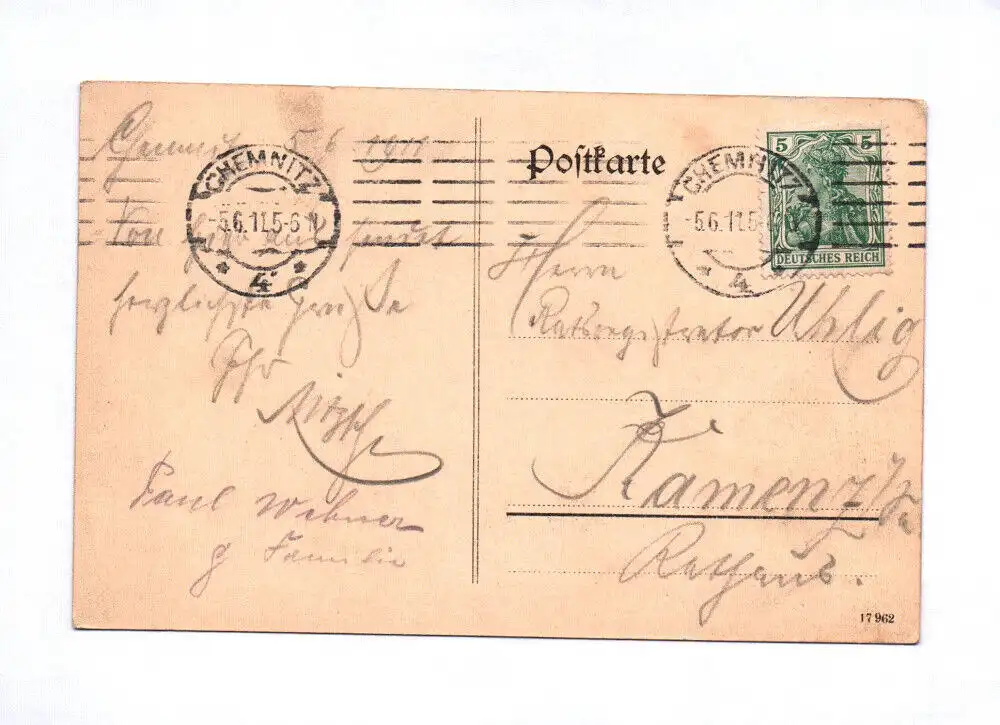 Chemnitz 5 6 1911
Von hier aus sendet
herzlichste Grüße
Ihr
Paul
& Familie
CHEMNITZ
5.6.11.5-6 N
* 4 *
Postkarte
CHEMNITZ
5.6.11.5
* 4
5 5
DEUTSCHES REICH
Herrn
Ratsregistrator Uhlig
Kamenz i/Sa
Rathaus.
17 962